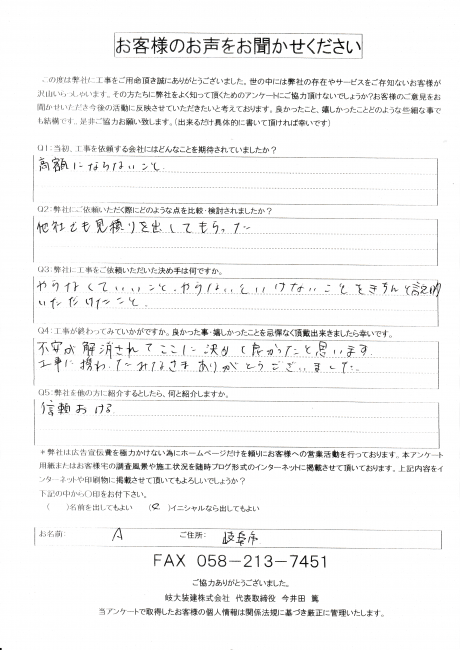 お客様のお声をお聞かせください
この度は弊社に工事をご用命頂き誠にありがとうございました。世の中には弊社の存在やサービスをご存知ないお客様が
沢山いらっしゃいます。その方たちに弊社をよく知って頂くためのアンケートにご協力頂けないでしょうか？お客様のご意見をお
聞かせいただき今後の活動に反映させていただきたいと考えております。良かったこと、嬉しかったことどのような些細な事で
も結構です。是非ご協力お願い致します。（出来るだけ具体的に書いて頂ければ幸いです）
Q1:当初、工事を依頼する会社にはどんなことを期待されていましたか？
高額にならないこと
Q2:弊社にご依頼いただく際にどのような点を比較・検討されましたか？
他社でも見積りを出してもらった
Q3:弊社に工事をご依頼いただいた決め手は何ですか。
やらなくていいこと、やらないといけないことをきちんと説明
いただけたこと、
Q4:工事が終わってみていかがですか。良かった事・嬉しかったことを忌憚なく頂戴出来きましたら幸いです。
不安が解消されてここに決めて良かったと思います。
工事に携わったみなさまありがとうございました。
Q5:弊社を他の方に紹介するとしたら、何と紹介しますか。
信頼おける
＊弊社は広告宣伝費を極力かけない為にホームページだけを頼りにお客様への営業活動を行っております。本アンケート
用紙またはお客様宅の調査風景や施工状況を随時ブログ形式のインターネットに掲載させて頂いております。上記内容をイ
ンターネットや印刷物に掲載させて頂いてもよろしいでしょうか？
下記の中から〇印をお付下さい。
（　）名前を出してもよい　（〇）イニシャルなら出してもよい
お名前:　A　ご住所:　岐阜市
FAX 058-213-7451
ご協力ありがとうございました。
岐大装建株式会社　代表取締役　今井田　篤
当アンケートで取得したお客様の個人情報は関係法規に基づき厳正に管理いたします。